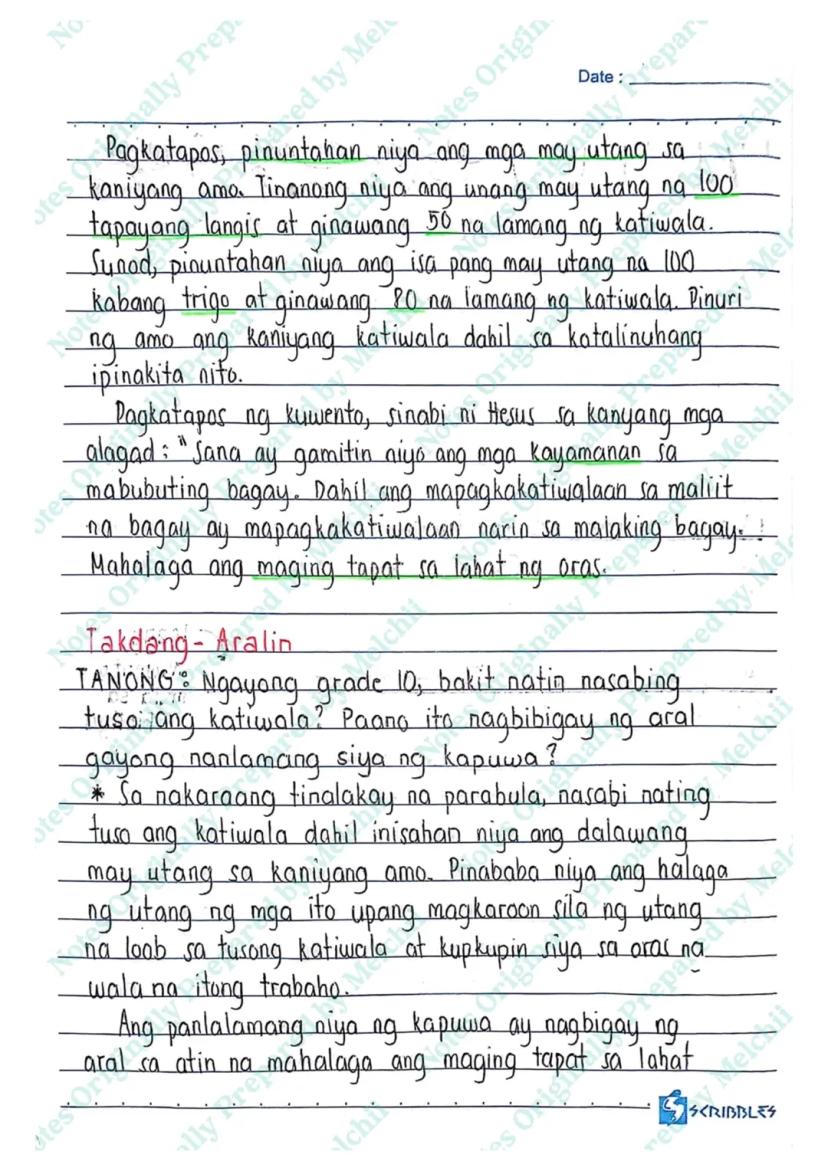 Date :
Pagkatapos, pinuntahan niya ang mga may utang sa
kaniyang amo. Tinanong niya ang unang may utang ng 100
tapayang langis at ginawang 50 na lamang ng katiwala.
Sunod, pinuntahan niya ang isa pang may utang na 100
kabang trigo at ginawang 80 na lamang ng katiwala. Pinuri
ng amo ang kaniyang katiwala dahil sa katalinuhang
ipinakita nito.
Pagkatapos ng kuwento, sinabi ni Hesus sa kanyang mga
alagad : "Sana ay gamitin niyo ang mga kayamanan sa
mabubuting bagay. Dahil ang mapagkakatiwalaan sa maliit
na bagay ay mapagkakatiwalaan narin sa malaking bagay.
Mahalaga ang maging tapat sa lahat ng oras.
Takdang - Aralin
TANONG : Ngayong grade 10, bakit natin nasabing
tuso ang katiwala? Paano ito nagbibigay ng aral
gayong nanlamang siya ng kapuwa?
* Sa nakaraang tinalakay na parabula, nasabi nating
tuso ang katiwala dahil inisahan niya ang dalawang
may utang sa kaniyang amo. Pinababa niya ang halaga
ng utang ng mga ito upang magkaroon sila ng utang
na loob sa tusong katiwala at kupkupin siya sa oras na
wala na itong trabaho.
Ang panlalamang niya ng kapuwa ay nagbigay ng
aral sa atin na mahalaga ang maging tapat sa lahat
SCRIBBLES
Notes Originally Prepared by Melchii